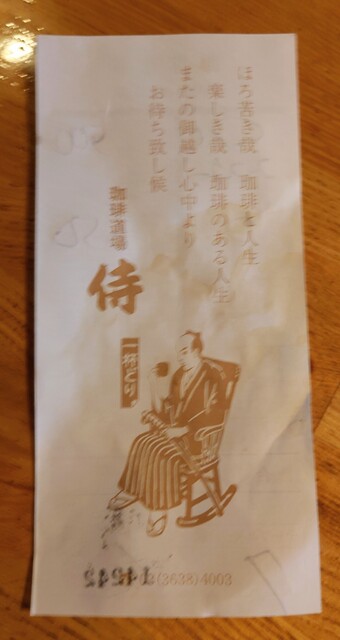 ほろ苦き哉 珈琲と人生
楽しき哉 珈琲のある人生
またの御越し心中より
お待ち致し候
珈琲道場
侍
一杯どり。
(3638)4003